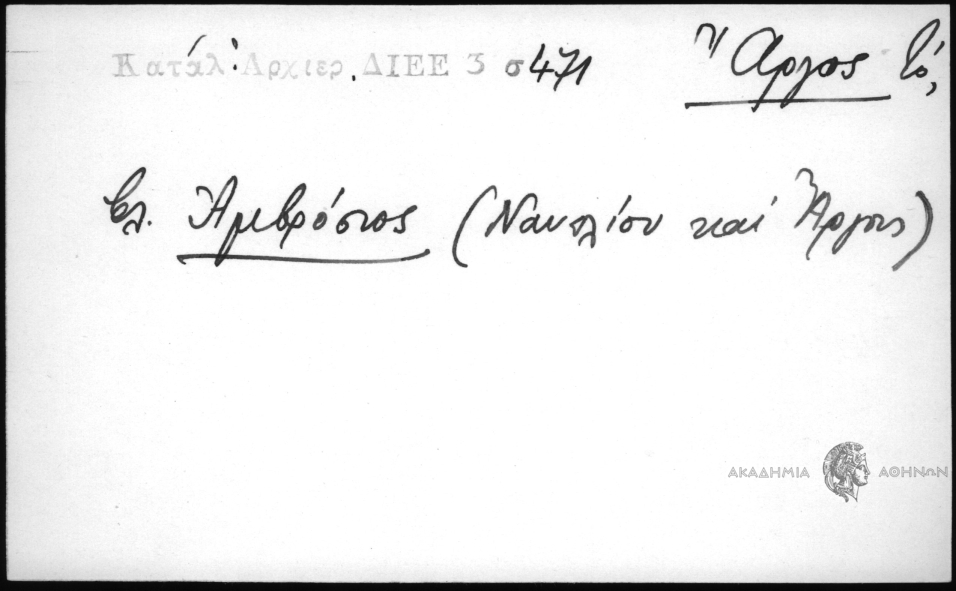 Κατάλ. Ἀρχιερ. ΔΙΕΕ 3 σ 471 Ἄργος τό,
βλ. Ἀμβρόσιος (Ναυπλίου καί Ἄργους)
ΑΚΑΔΗΜΙΑ ΑΘΗΝΩΝ